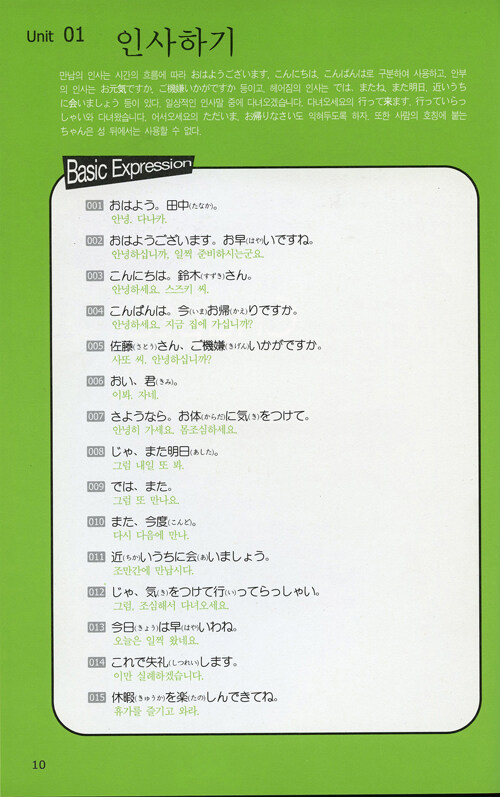 Unit 01 인사하기
만남의 인사는 시간의 흐름에 따라 おはようございます, こんにちは, こんばんは로 구분하여 사용하고, 안부
의 인사는 お元気ですか, ご機嫌いかがですか 등이고, 헤어짐의 인사는 では, またね, また明日, 近いうち
に会いましょう 등이 있다. 일상적인 인사말 중에 다녀오겠습니다, 다녀오세요의 行って来ます, 行っていらっ
しゃい와 다녀왔습니다, 어서오세요의 ただいま, お帰りなさい도 익혀두도록 하자. 또한 사람의 호칭에 붙는
ちゃん은 성 뒤에서는 사용할 수 없다.
Basic Expression
001 おはよう。田中(たなか)。
안녕, 다나카.
002 おはようございます。お早(はや)いですね。
안녕하십니까, 일찍 준비하시는군요.
003 こんにちは。鈴木(すずき)さん。
안녕하세요, 스즈키 씨.
004 こんばんは。今(いま)お帰(かえ)りですか。
안녕하세요, 지금 집에 가십니까?
005 佐藤(さとう)さん、ご機嫌(きげん)いかがですか。
사또 씨, 안녕하십니까?
006 おい、君(きみ)。
이봐, 자네.
007 さようなら。お体(からだ)に気(き)をつけて。
안녕히 가세요. 몸조심하세요.
008 じゃ、また明日(あした)。
그럼 내일 또 봐.
009 では、また。
그럼 또 만나요.
010 また、今度(こんど)。
다시 다음에 만나.
011 近(ちか)いうちに会(あ)いましょう。
조만간에 만납시다.
012 じゃ、気(き)をつけて行(い)ってらっしゃい。
그럼, 조심해서 다녀오세요.
013 今日(きょう)は早(はや)いわね。
오늘은 일찍 왔네요.
014 これで失礼(しつれい)します。
이만 실례하겠습니다.
015 休暇(きゅうか)を楽(たの)しんできてね。
휴가를 즐기고 와라.
10